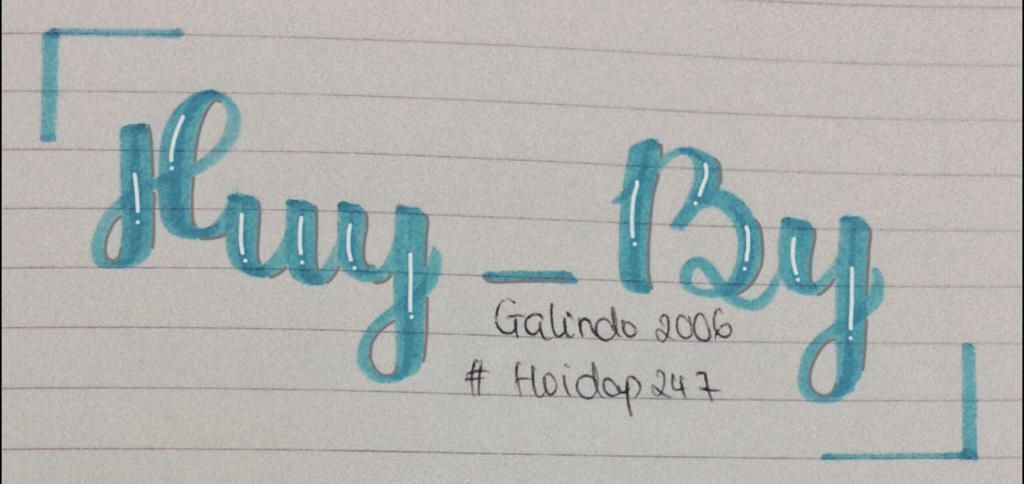 Huy_By
Galindo 2006
# Hoidap247